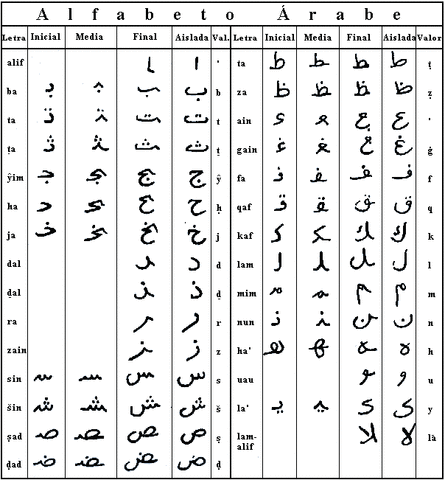 Alfabeto Árabe
Letra Inicial Media Final Aislada Val. Letra Inicial Media Final Aislada Valor
alif ـا ا ' ta طـ ـطـ ـط ط ṭ
ba بـ ـبـ ـب ب b za ظـ ـظـ ـظ ظ ẓ
ta تـ ـتـ ـت ت t ain عـ ـعـ ـع ع ‘
ṭa ثـ ـثـ ـث ث ṭ gain غـ ـغـ ـغ غ ġ
ŷim جـ ـجـ ـج ج ŷ fa فـ ـفـ ـف ف f
ha حـ ـحـ ـح ح ḥ qaf قـ ـقـ ـق ق q
ja خـ ـخـ ـخ خ j kaf كـ ـكـ ـك ك k
dal ـد د d lam لـ ـلـ ـل ل l
ḍal ـذ ذ ḍ mim مـ ـمـ ـم م m
ra ـر ر r nun نـ ـنـ ـن ن n
zain ـز ز z ha' هـ ـهـ ـه ه h
sin سـ ـسـ ـس س s uau ـو و u
šin شـ ـشـ ـش ش š la' يـ ـيـ ـى ى y
ṣad صـ ـصـ ـص ص ṣ lam-alif ـلا لا là
ḍad ضـ ـضـ ـض ض ḍ